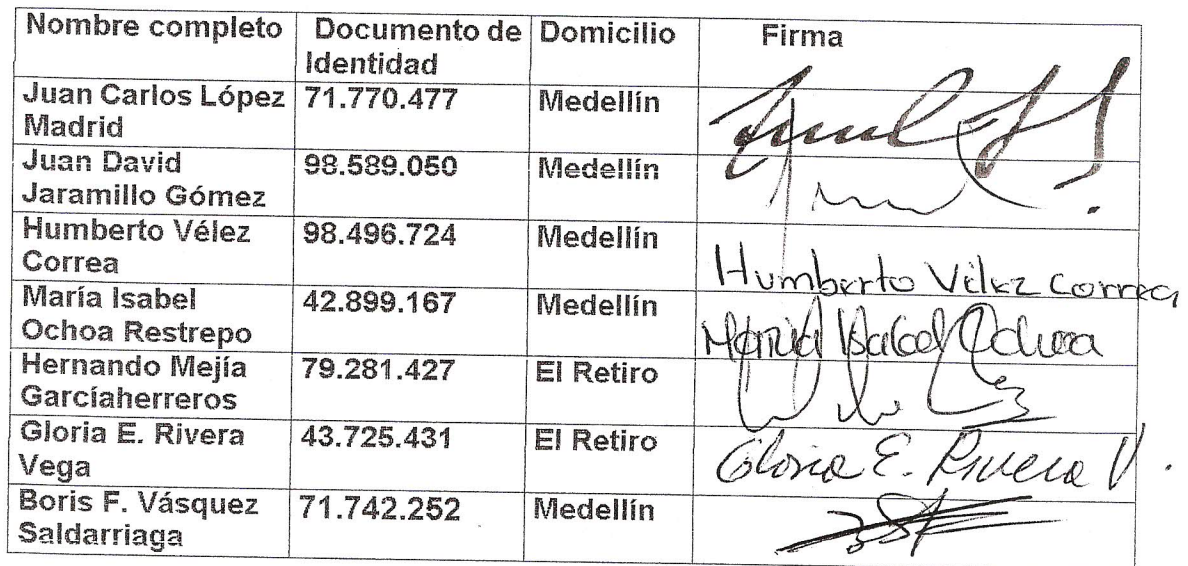 Nombre completo Documento de Identidad Domicilio Firma
Juan Carlos López Madrid 71.770.477 Medellín
Juan David Jaramillo Gómez 98.589.050 Medellín
Humberto Vélez Correa 98.496.724 Medellín Humberto Vélez Correa
María Isabel Ochoa Restrepo 42.899.167 Medellín María Isabel Ochoa
Hernando Mejía Garcíaherreros 79.281.427 El Retiro
Gloria E. Rivera Vega 43.725.431 El Retiro Gloria E. Rivera V.
Boris F. Vásquez Saldarriaga 71.742.252 Medellín